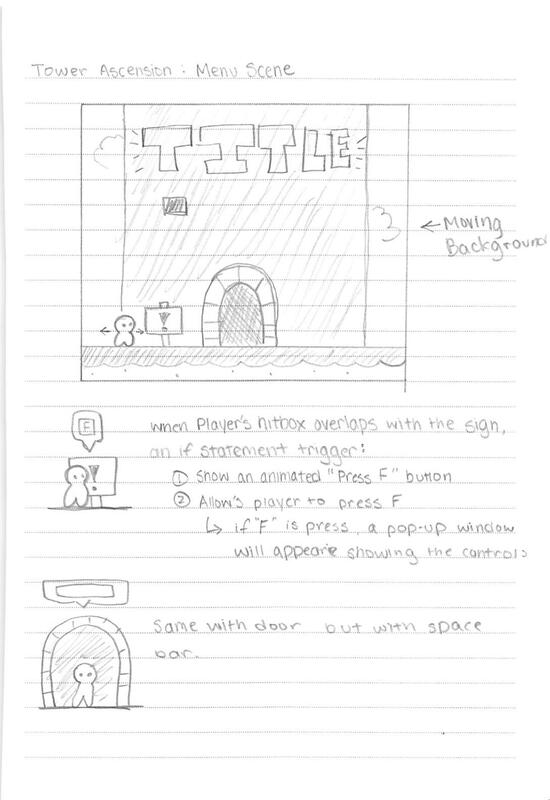 Tower Ascension : Menu Scene
TITLE
!
3
← Moving
Background
F
!
when Player's hitbox overlaps with the sign,
an if statement trigger:
① Show an animated "Press F" button
② Allow's player to press F
↳ if "F" is press, a pop-up window
will appeare showing the controls
Same with door but with space
bar.